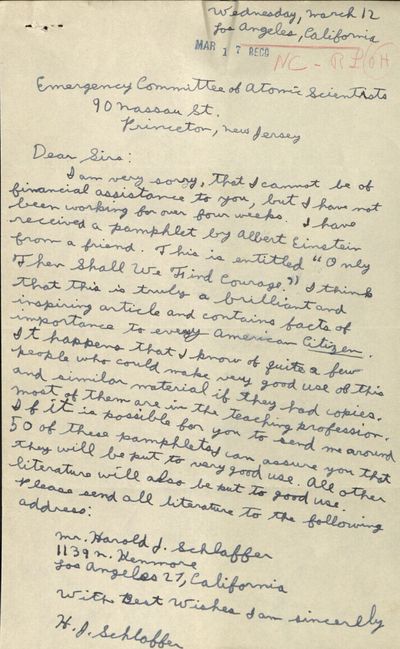 Wednesday, March 12
Los Angeles, California
MAR 17 RECD
NC -
Emergency Committee of Atomic Scientists
90 Nassau St.
Princeton, New Jersey
Dear Sirs:
I am very sorry, that I cannot be of
financial assistance to you, but I have not
been working for over four weeks. I have
received a pamphlet by Albert Einstein
from a friend. This is entitled "Only
Then Shall We Find Courage." I think
that this is truly a brilliant and
inspiring article and contains facts of
importance to every American Citizen.
It happens that I know of quite a few
people who could make very good use of this
and similar material if they had copies.
Most of them are in the teaching profession.
If it is possible for you to send me around
50 of these pamphlets I can assure you that
they will be put to very good use. All other
literature will also be put to good use.
Please send all literature to the following
address:
Mr. Harold J. Schlaffer
1139 N. Kenmore
Los Angeles 27, California
With Best Wishes I am sincerely
H. J. Schlaffer